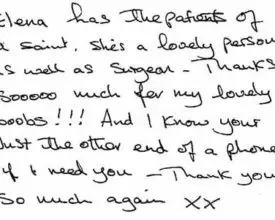 Elena has the patients of
a saint. she's a lovely person
as well as surgeon - Thanks
sooooo much for my lovely
boobs!!! And I know your
Just the other end of a phone
if I need you - Thank you
so much again xx